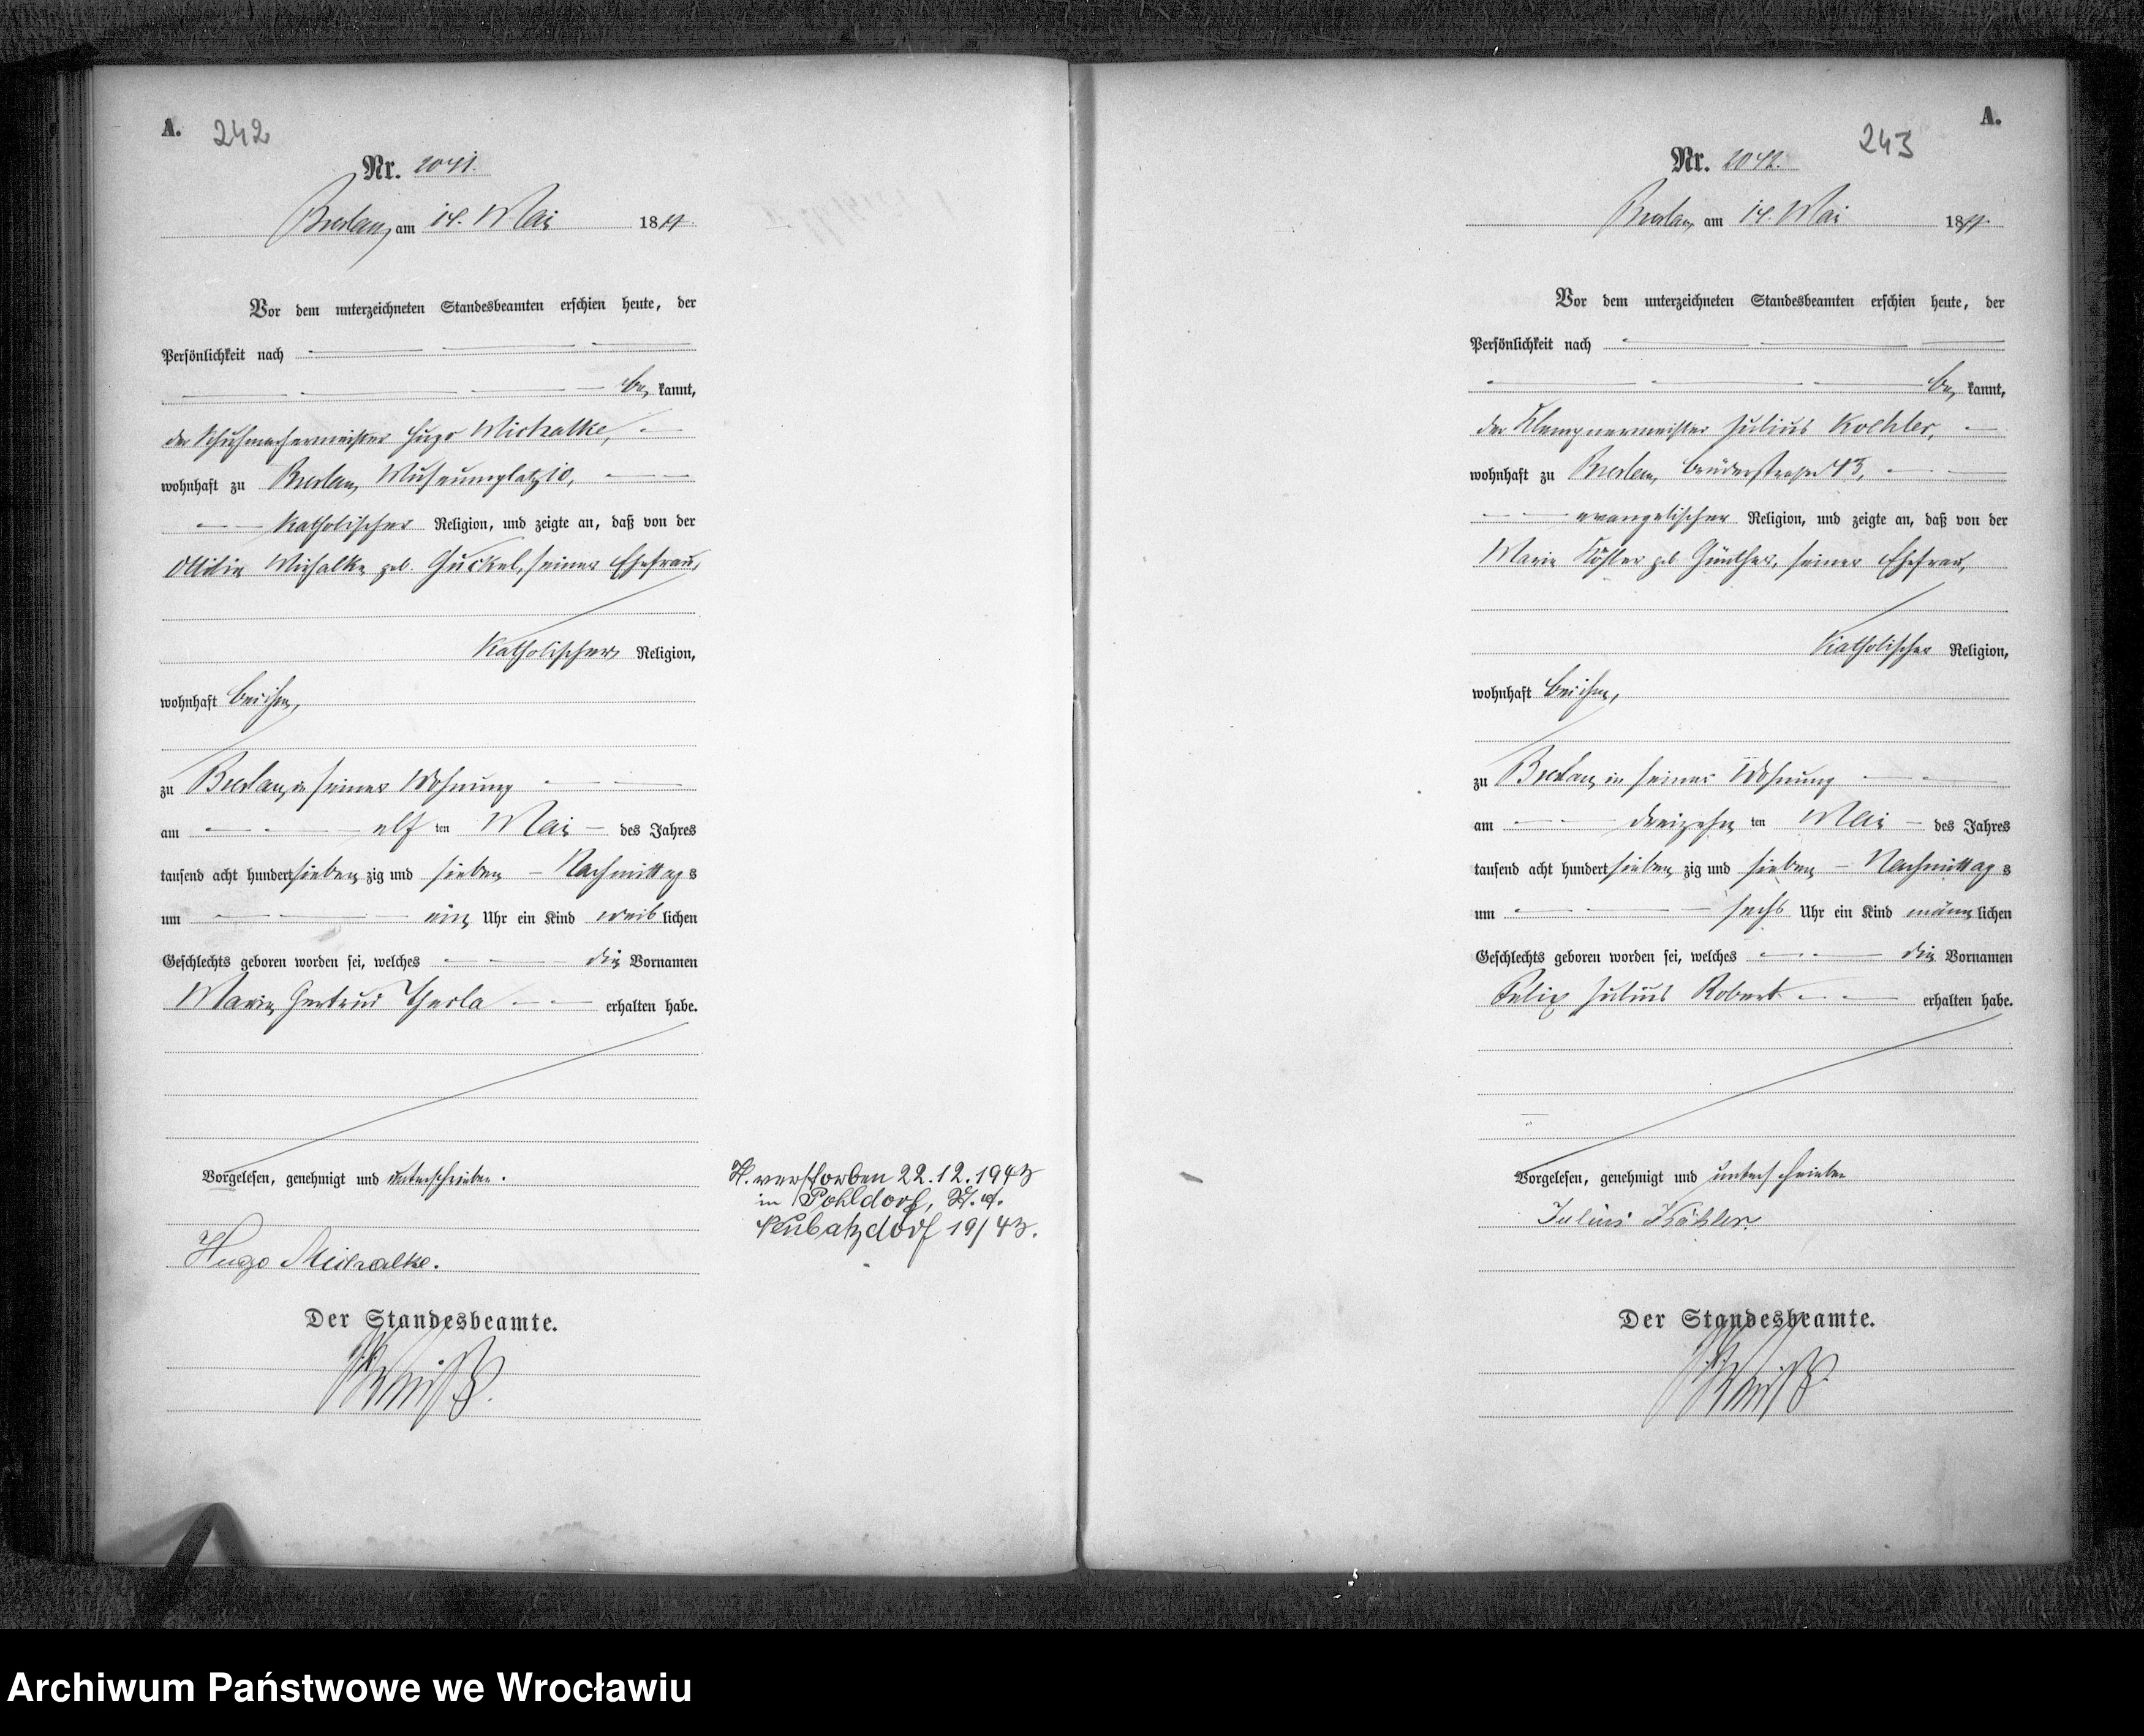 A. 242
Nr. 2041.
Breslau, am 14. Mai 1877.
Vor dem unterzeichneten Standesbeamten erschien heute, der
Persönlichkeit nach
be kannt,
der Schuhmachermeister Hugo Michalke,
wohnhaft zu Breslau, Museumplatz 10,
katholischer Religion, und zeigte an, daß von der
Ottilie Michalke geb. Guckel, seiner Ehefrau,
katholischer Religion,
wohnhaft bei ihm,
zu Breslau, in seiner Wohnung
am elf ten Mai des Jahres
tausend acht hundert sieben zig und sieben Nachmittag s
um ein Uhr ein Kind weib lichen
Geschlechts geboren worden sei, welches die Vornamen
Marie Gertrud Thecla erhalten habe.
Vorgelesen, genehmigt und unterschrieben.
Hugo Michalke.
Der Standesbeamte.
verstorben 22.12.1943
in Pohldorf, St. A.
Neubatzdorf 19/43.
A.
243
Nr. 2042.
Breslau, am 14. Mai 1877.
Vor dem unterzeichneten Standesbeamten erschien heute, der
Persönlichkeit nach
be kannt,
der Klempnermeister Julius Koehler,
wohnhaft zu Breslau, Brüderstraße 43,
evangelischer Religion, und zeigte an, daß von der
Marie Köhler geb. Günther, seiner Ehefrau,
katholischer Religion,
wohnhaft bei ihm,
zu Breslau, in seiner Wohnung
am dreizehn ten Mai des Jahres
tausend acht hundert sieben zig und sieben Nachmittag s
um sechs Uhr ein Kind männ lichen
Geschlechts geboren worden sei, welches die Vornamen
Felix Julius Robert erhalten habe.
Vorgelesen, genehmigt und unterschrieben
Julius Köhler
Der Standesbeamte.
Archiwum Państwowe we Wrocławiu